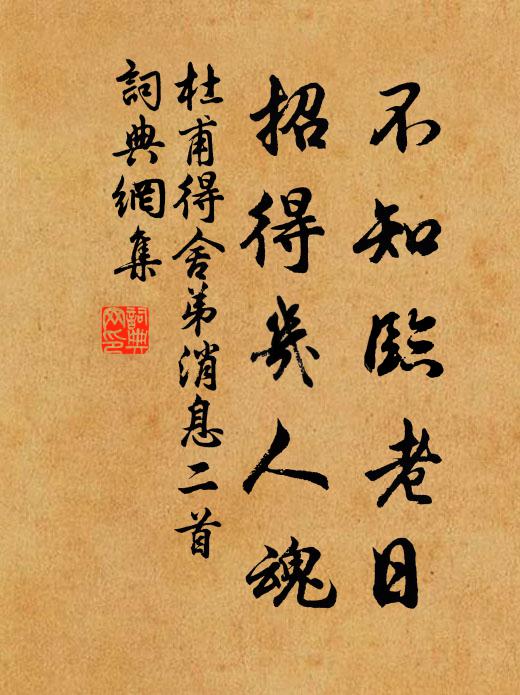 不知臨老日
招得幾人魂
杜甫得舍弟消息二首
詞典網集
詞典網印